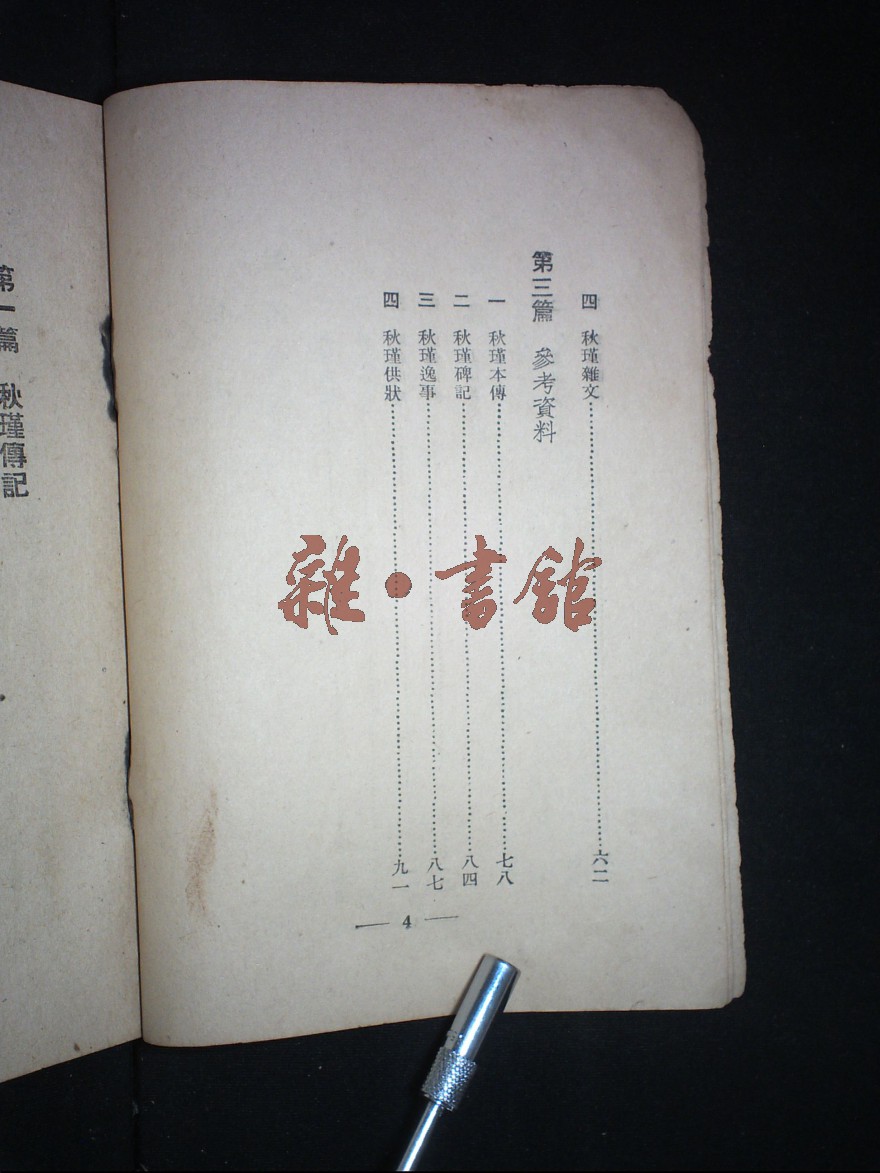 四 秋瑾雜文……六二
第三篇 參考資料
一 秋瑾本傳……七八
二 秋瑾碑記……八四
三 秋瑾逸事……八七
四 秋瑾供狀……九一
— 4 —
第一篇 秋瑾傳記
雜·書館